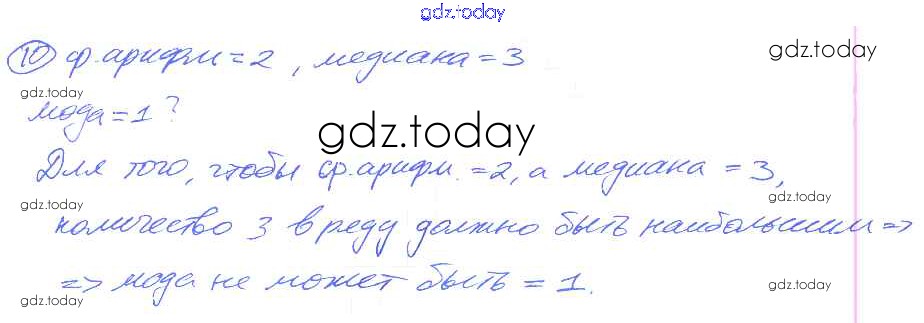 gdz.today
⑩ ср.арифм=2, медиана=3
gdz.today
gdz.today
мода=1?
gdz.today
Для того, чтобы ср.арифм.=2, а медиана=3,
gdz.today
gdz.today
количество 3 в ряду должно быть наибольшим =>
=> мода не может быть = 1.
gdz.today
gdz.today